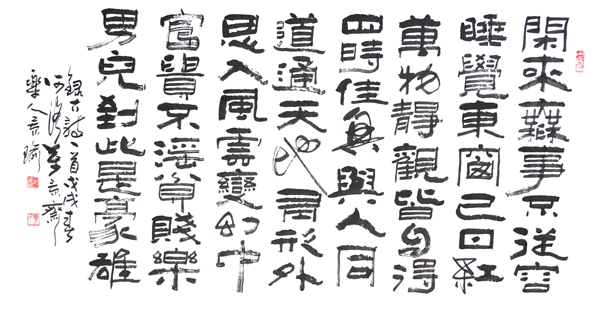 閑來無事不從容
睡覺東窗已日紅
萬物靜觀皆自得
四時佳興與人同
道通天地有形外
思入風雲變幻中
富貴不淫貧賤樂
男兒到此是豪雄
錄古詩一首戊戌春
樂人